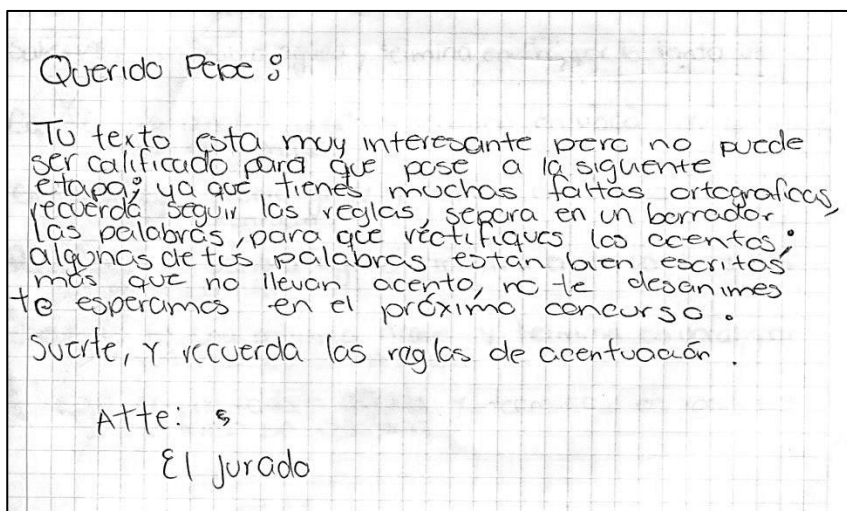 Querido Pepe:
Tu texto esta muy interesante pero no puede
ser calificado para que pase a la siguiente
etapa; ya que tienes muchas faltas ortograficas,
recuerda seguir las reglas, separa en un borrador
las palabras, para que rectifiques los acentos;
algunas de tus palabras están bien escritas
más que no llevan acento, no te desanimes
te esperamos en el próximo concurso.
Suerte, y recuerda las reglas de acentuación.
Atte:
El jurado